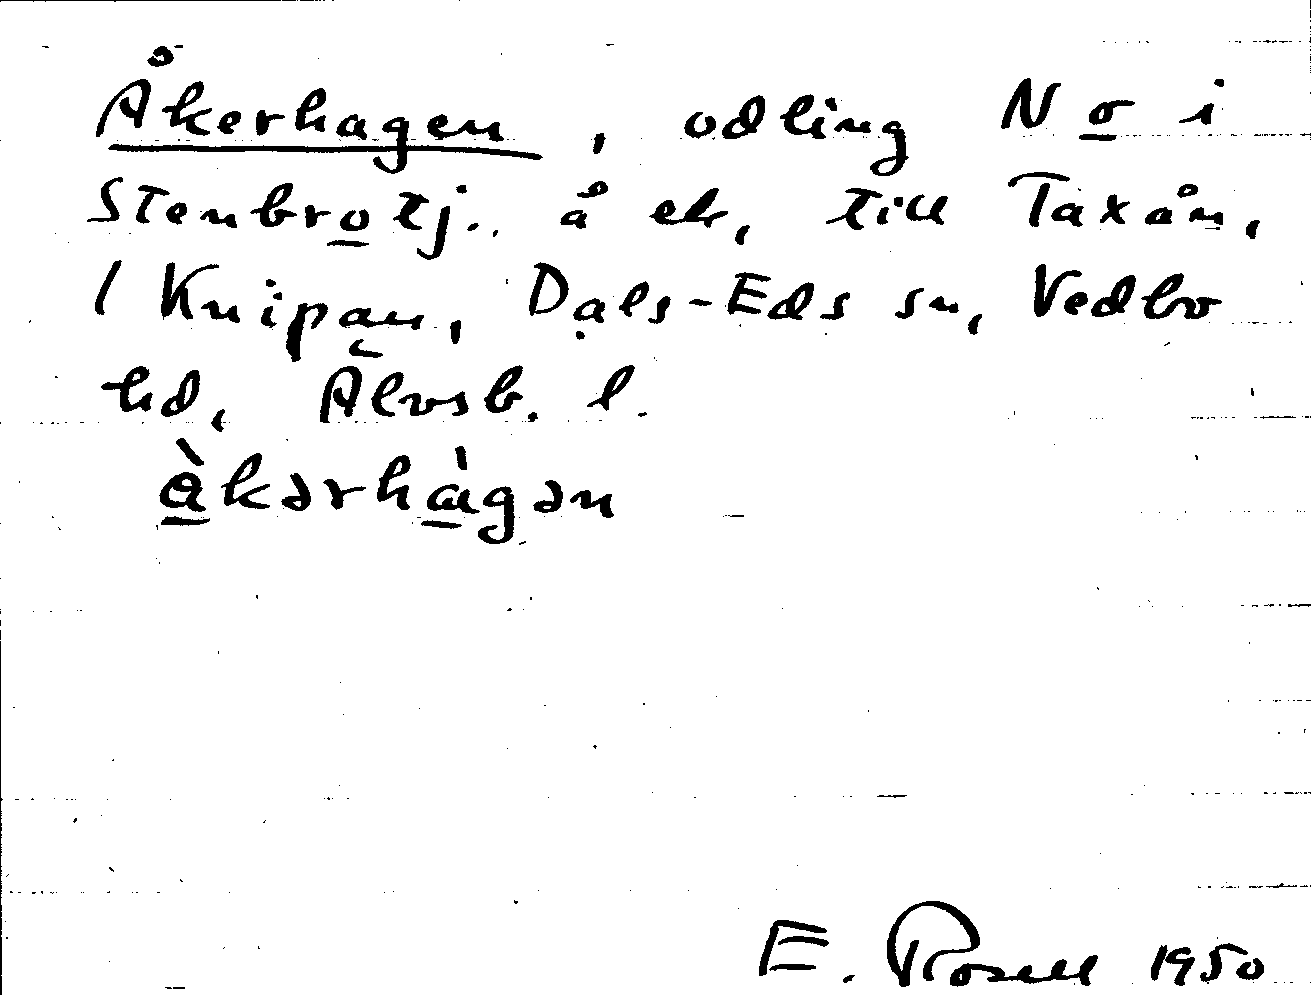 Åkerhagen, odling N o i
Stenbrotj. å ek, till Taxån,
1 Knipan, Dals-Eds sn, Vedbo
hd, Älvsb. l.
àkərhàgən
E. Rosell 1950